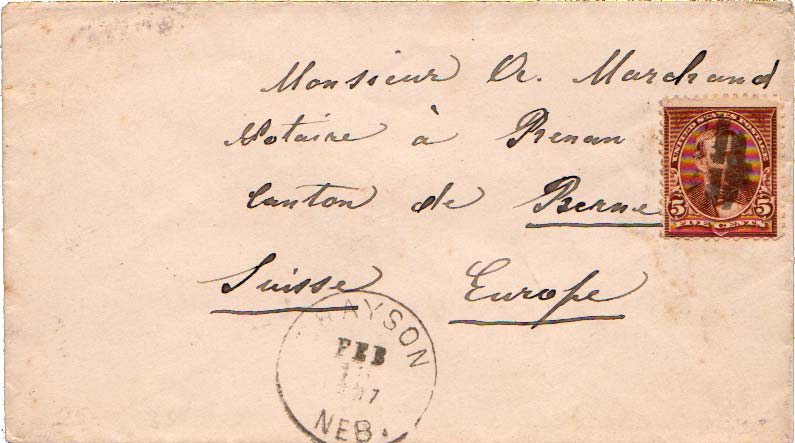 Monsieur Or. Marchand
Notaire à Renan
Canton de Berne
Suisse Europe
UNITED STATES POSTAGE
5 5
FIVE CENTS
GRAYSON
FEB
NEB.